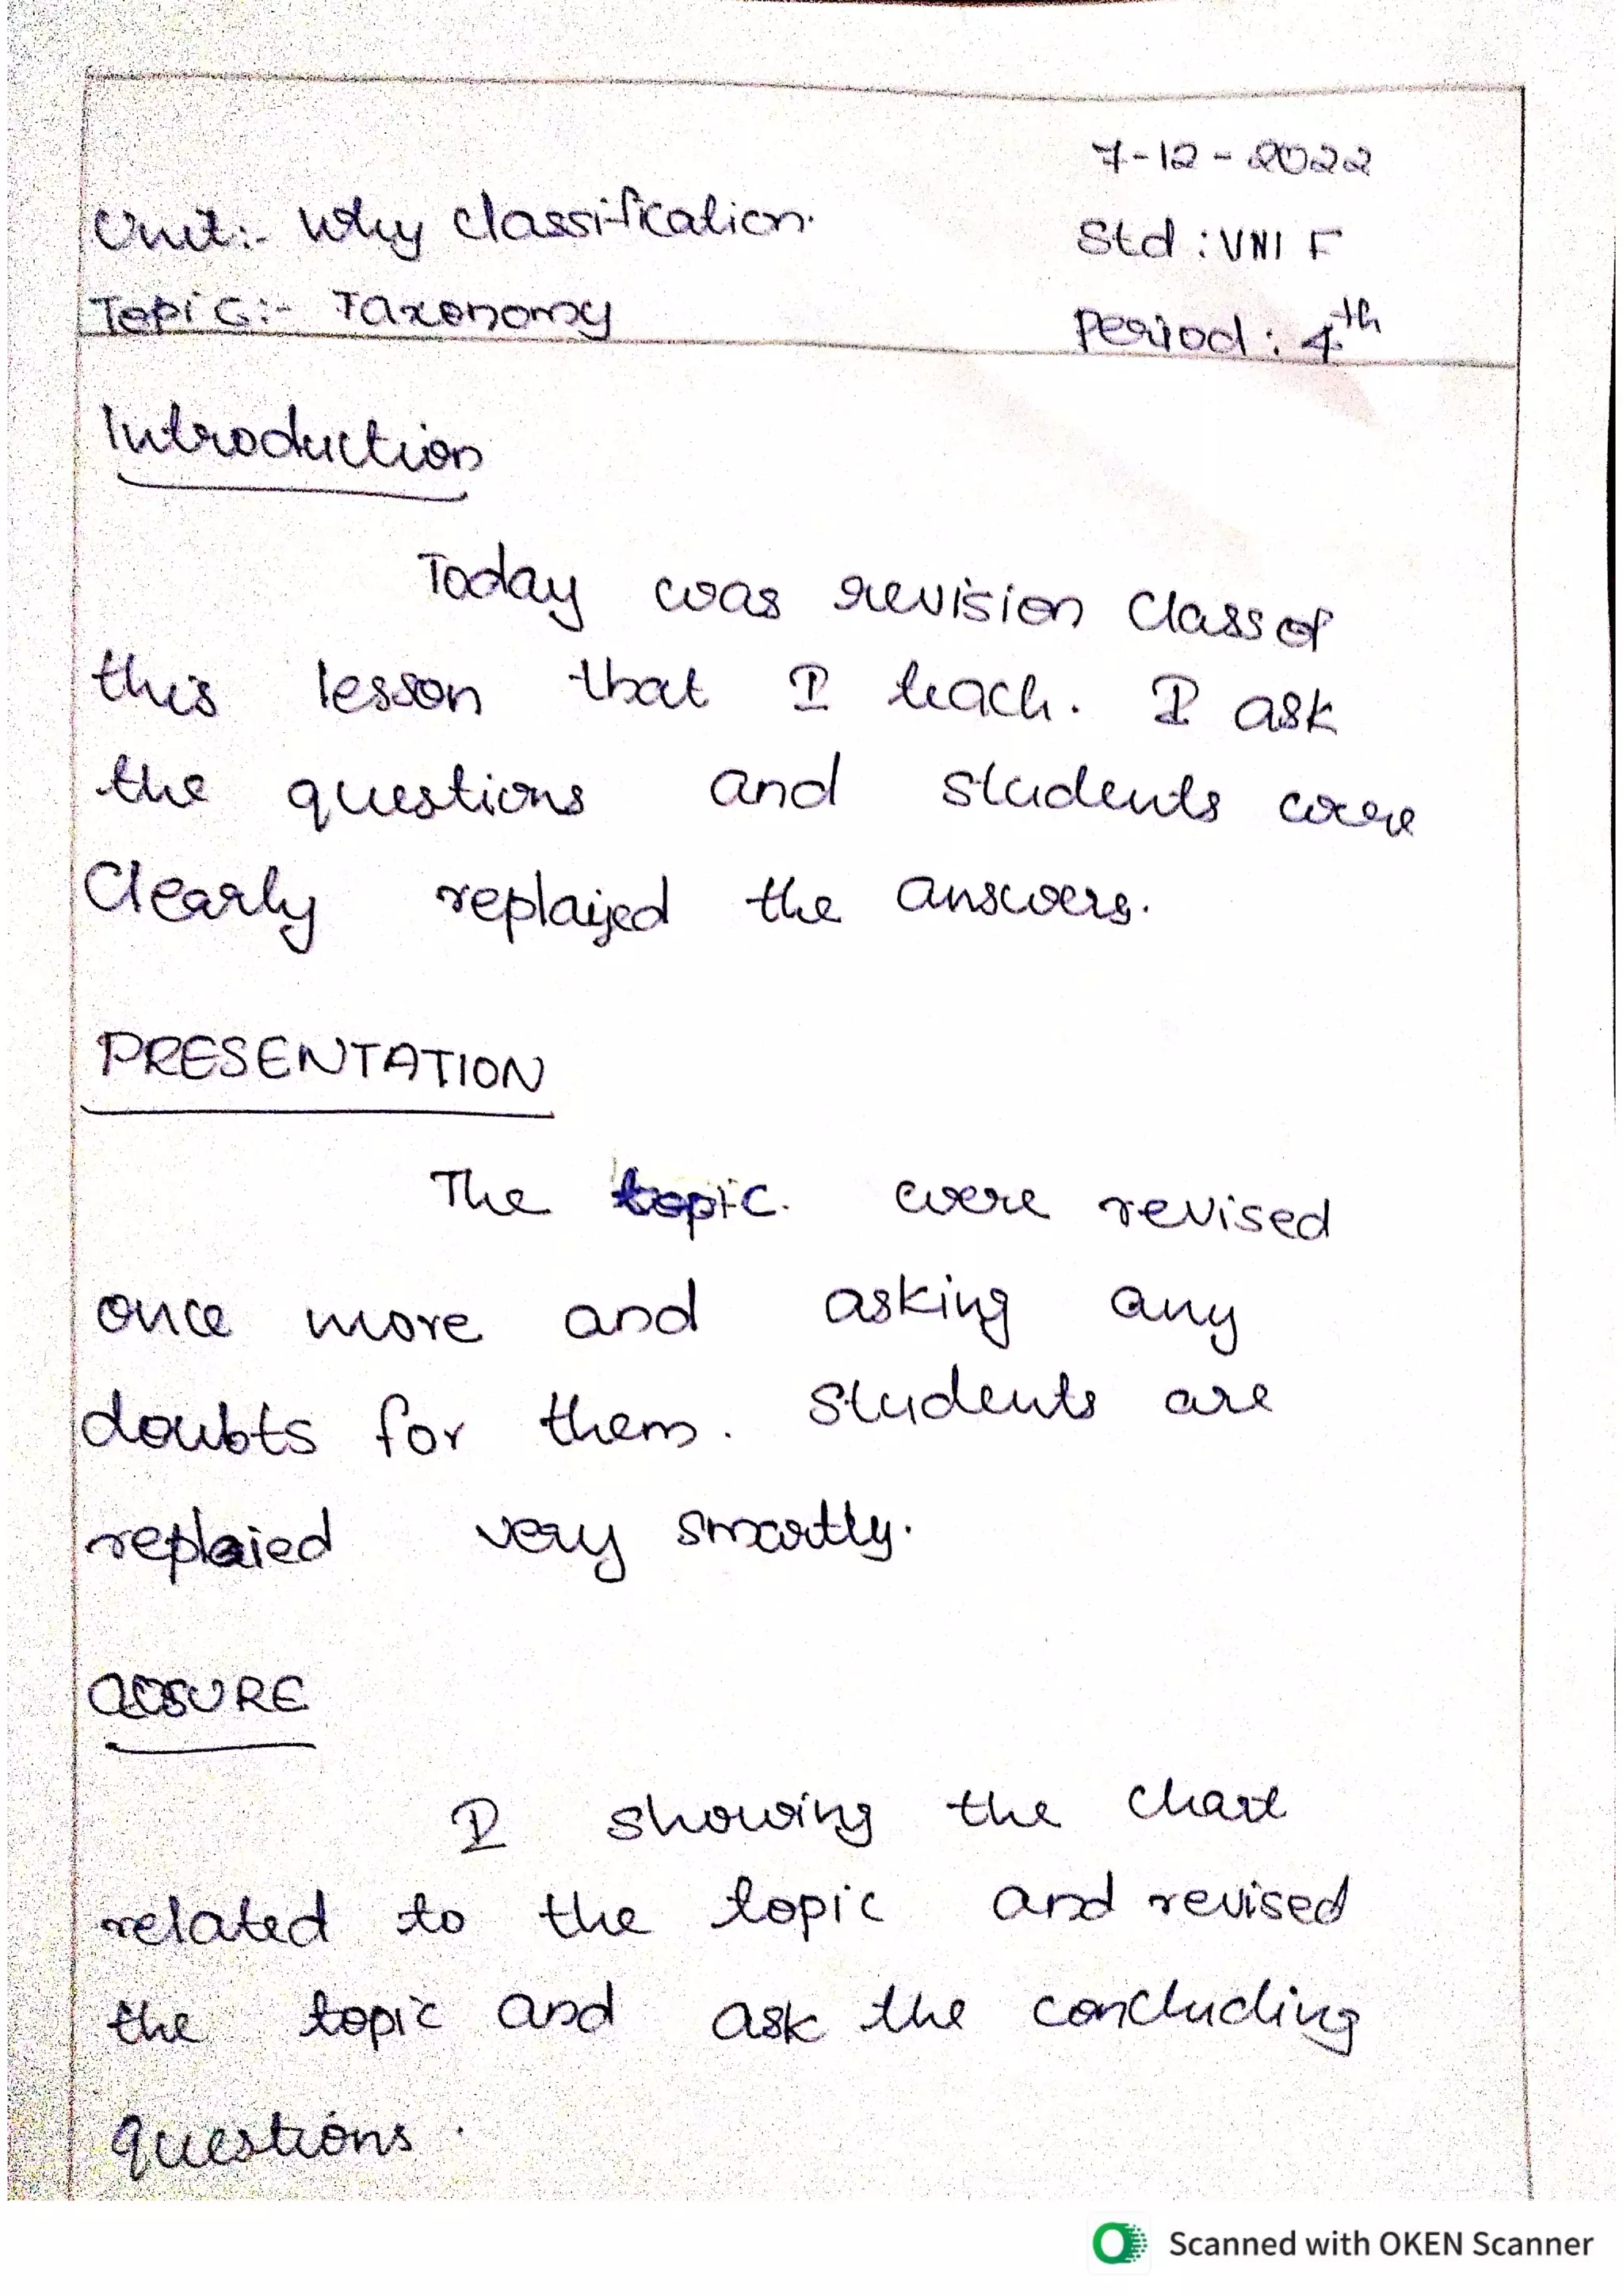 7-12-2022
Unit:- Why classification.
Std : VNI F
Topic:- Taxonomy
Period : 4th
Introduction
Today was revision Class of
this lesson that I teach. I ask
the questions and students were
Clearly replaijed the answers.
PRESENTATION
The topic. were revised
once more and asking any
doubts for them. Students are
replaied very smartly.
ClOSURE
I showing the chart
related to the topic and revised
the topic and ask the concluding
questions.
Scanned with OKEN Scanner